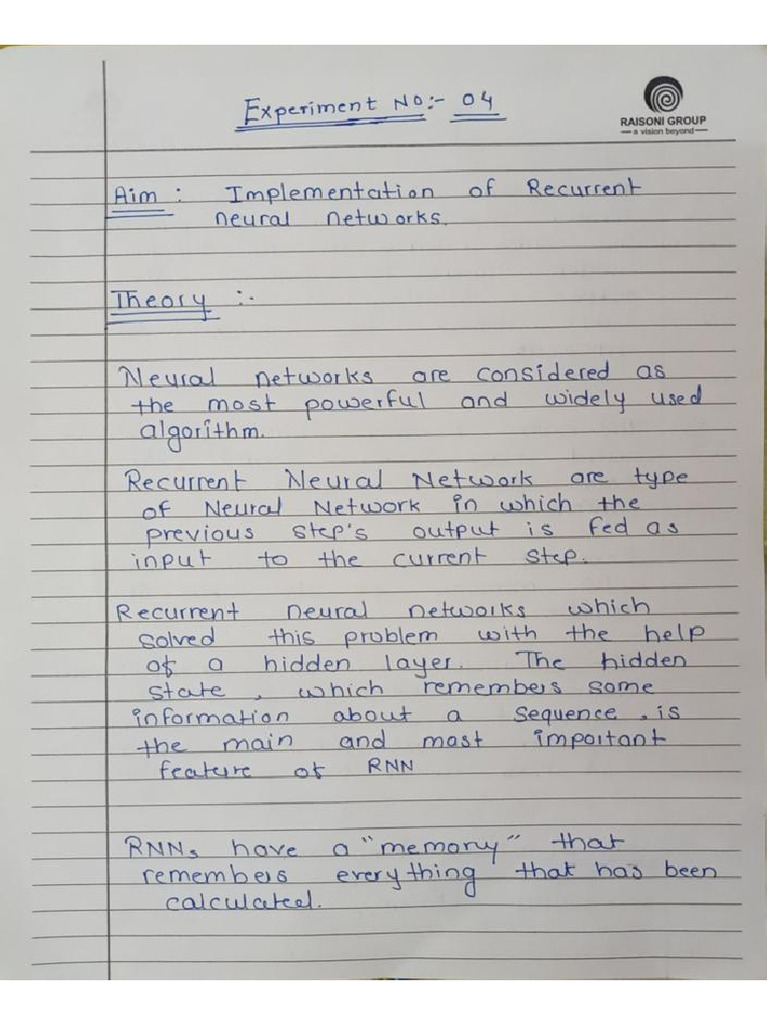 Experiment No:- 04
RAISONI GROUP
— a vision beyond —
Aim : Implementation of Recurrent
neural networks.
Theory :-
Neural networks are considered as
the most powerful and widely used
algorithm.
Recurrent Neural Network are type
of Neural Network in which the
previous step's output is fed as
input to the current step.
Recurrent neural networks which
solved this problem with the help
of a hidden layer. The hidden
state, which remembers some
information about a sequence, is
the main and most important
feature of RNN
RNNs have a "memory" that
remembers everything that has been
calculated.